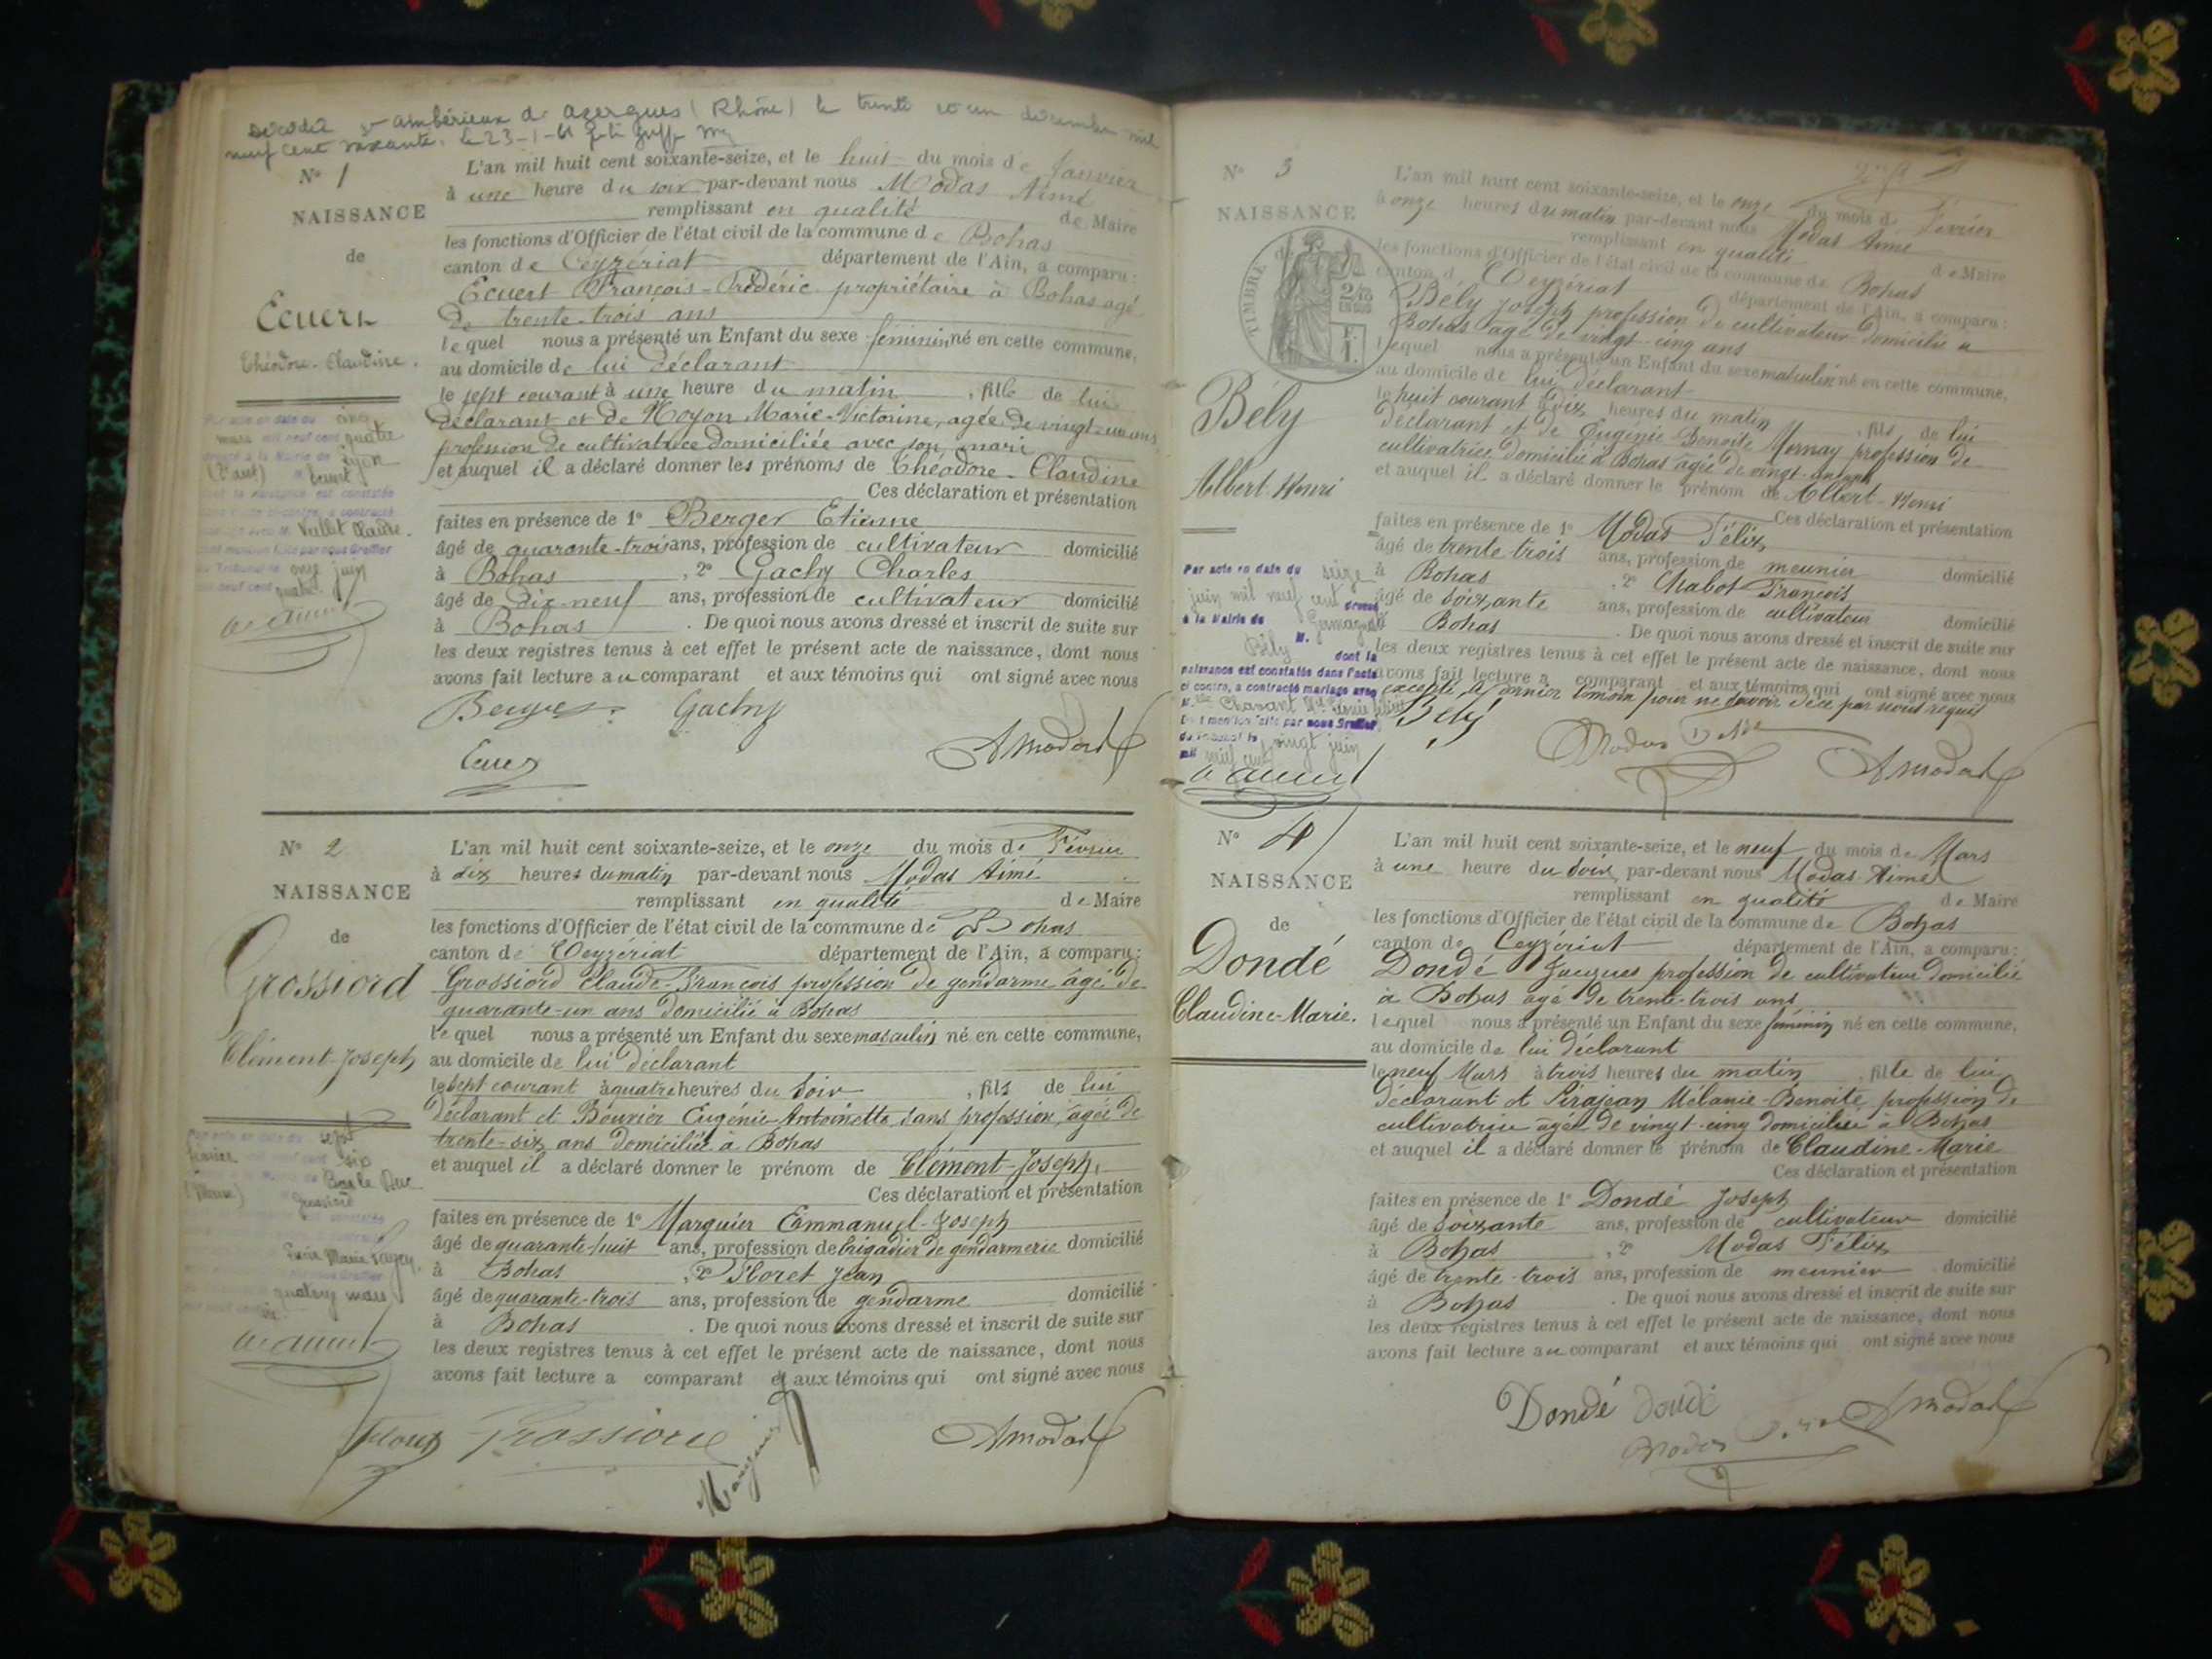 Décédée à Ambérieux d'Azergues (Rhône) le trente et un décembre mil
neuf cent soixante. Le 23-1-61
N° 1
NAISSANCE
de
Ecuert
Théodore-Claudine.
cinq
mars quatre
Lyon
Ecuert
Vuillet Claude.
onze juin
quatre
L'an mil huit cent soixante-seize, et le huit du mois de Janvier
à une heure du soir par-devant nous Modas Aimé
remplissant en qualité de Maire
les fonctions d'Officier de l'état civil de la commune de Bohas
canton de Ceyzériat département de l'Ain, a comparu:
Ecuert François-Frédéric propriétaire à Bohas agé
de trente-trois ans
lequel nous a présenté un Enfant du sexe féminin né en cette commune,
au domicile de lui déclarant
le sept courant à une heure du matin, fille de lui
déclarant et de Noyon Marie-Victorine, agée de vingt-un ans
profession de cultivatrice domiciliée avec son mari
et auquel il a déclaré donner les prénoms de Théodore-Claudine
Ces déclaration et présentation
faites en présence de 1° Berger Etienne
âgé de quarante-trois ans, profession de cultivateur domicilié
à Bohas, 2° Gachy Charles
âgé de dix-neuf ans, profession de cultivateur domicilié
à Bohas. De quoi nous avons dressé et inscrit de suite sur
les deux registres tenus à cet effet le présent acte de naissance, dont nous
avons fait lecture au comparant et aux témoins qui ont signé avec nous
Berger Gachy
AModas
Ecuer
N° 2
NAISSANCE
de
Grossiord
Clément-Joseph
sept
février six
Bar le Duc
(Meuse) Grossiord
Marie
quatorze mars
six
L'an mil huit cent soixante-seize, et le onze du mois de Février
à dix heures du matin par-devant nous Modas Aimé
remplissant en qualité de Maire
les fonctions d'Officier de l'état civil de la commune de Bohas
canton de Ceyzériat département de l'Ain, a comparu:
Grossiord Claude-François profession de gendarme âgé de
quarante-un ans domicilié à Bohas
lequel nous a présenté un Enfant du sexe masculin né en cette commune,
au domicile de lui déclarant
le sept courant à quatre heures du soir, fils de lui
déclarant et Bouvier Eugénie-Antoinette, sans profession, âgée de
trente-six ans domiciliée à Bohas
et auquel il a déclaré donner le prénom de Clément-Joseph,
Ces déclaration et présentation
faites en présence de 1° Marguier Emmanuel-Joseph
âgé de quarante-huit ans, profession de brigadier de gendarmerie domicilié
à Bohas, 2° Floret Jean
âgé de quarante-trois ans, profession de gendarme domicilié
à Bohas. De quoi nous avons dressé et inscrit de suite sur
les deux registres tenus à cet effet le présent acte de naissance, dont nous
avons fait lecture a comparant et aux témoins qui ont signé avec nous
Grossiord Marguier AModas
N° 3
NAISSANCE
de
TIMBRE
2/10
EN SUS
Bély
Albert-Henri
Par acte en date du seize
juin mil neuf cent dressé
à la Mairie de
M. Bély dont la
naissance est constatée dans l'acte
ci contre, a contracté mariage avec
M. Chavant
Dont mention faite par nous Greffier
du Tribunal le vingt juin
mil neuf cent
L'an mil huit cent soixante-seize, et le onze du mois de Février
à onze heures du matin par-devant nous Modas Aimé
remplissant en qualité de Maire
les fonctions d'Officier de l'état civil de la commune de Bohas
canton d Ceyzériat département de l'Ain, a comparu:
Bély Joseph profession de cultivateur domicilié a
Bohas agé de vingt-cinq ans
lequel nous a présenté un Enfant du sexe masculin né en cette commune,
au domicile de lui déclarant
le huit courant à dix heures du matin, fils de lui
déclarant et de Eugénie-Benoite Mornay profession de
cultivatrice domicilié à Bohas âgée de vingt-
et auquel il a déclaré donner le prénom de Albert-Henri
Ces déclaration et présentation
faites en présence de 1° Modas Félix
âgé de trente trois ans, profession de meunier domicilié
à Bohas, 2° Chabot François
âgé de soixante ans, profession de cultivateur domicilié
Bohas. De quoi nous avons dressé et inscrit de suite sur
les deux registres tenus à cet effet le présent acte de naissance, dont nous
avons fait lecture a comparant et aux témoins qui ont signé avec nous
excepté le dernier témoin pour ne savoir de ce par nous requis
Bély
Modas AModas
N° 4
NAISSANCE
de
Dondé
Claudine-Marie.
L'an mil huit cent soixante-seize, et le neuf du mois de Mars
à une heure du soir par-devant nous Modas Aimé
remplissant en qualité de Maire
les fonctions d'Officier de l'état civil de la commune de Bohas
canton de Ceyzériat département de l'Ain, a comparu:
Dondé Jacques profession de cultivateur domicilié
à Bohas agé de trente-trois ans
lequel nous a présenté un Enfant du sexe féminin né en cette commune,
au domicile de lui déclarant
le neuf Mars à trois heures du matin, fille de lui
déclarant et Pirajean Mélanie-Benoite profession de
cultivatrice agée de vingt-cinq domiciliée à Bohas
et auquel il a déclaré donner le prénom de Claudine-Marie
Ces déclaration et présentation
faites en présence de 1° Dondé Joseph
âgé de soixante ans, profession de cultivateur domicilié
à Bohas, 2° Modas Félix
âgé de trente-trois ans, profession de meunier domicilié
à Bohas. De quoi nous avons dressé et inscrit de suite sur
les deux registres tenus à cet effet le présent acte de naissance, dont nous
avons fait lecture au comparant et aux témoins qui ont signé avec nous
Dondé Dondé AModas
Modas